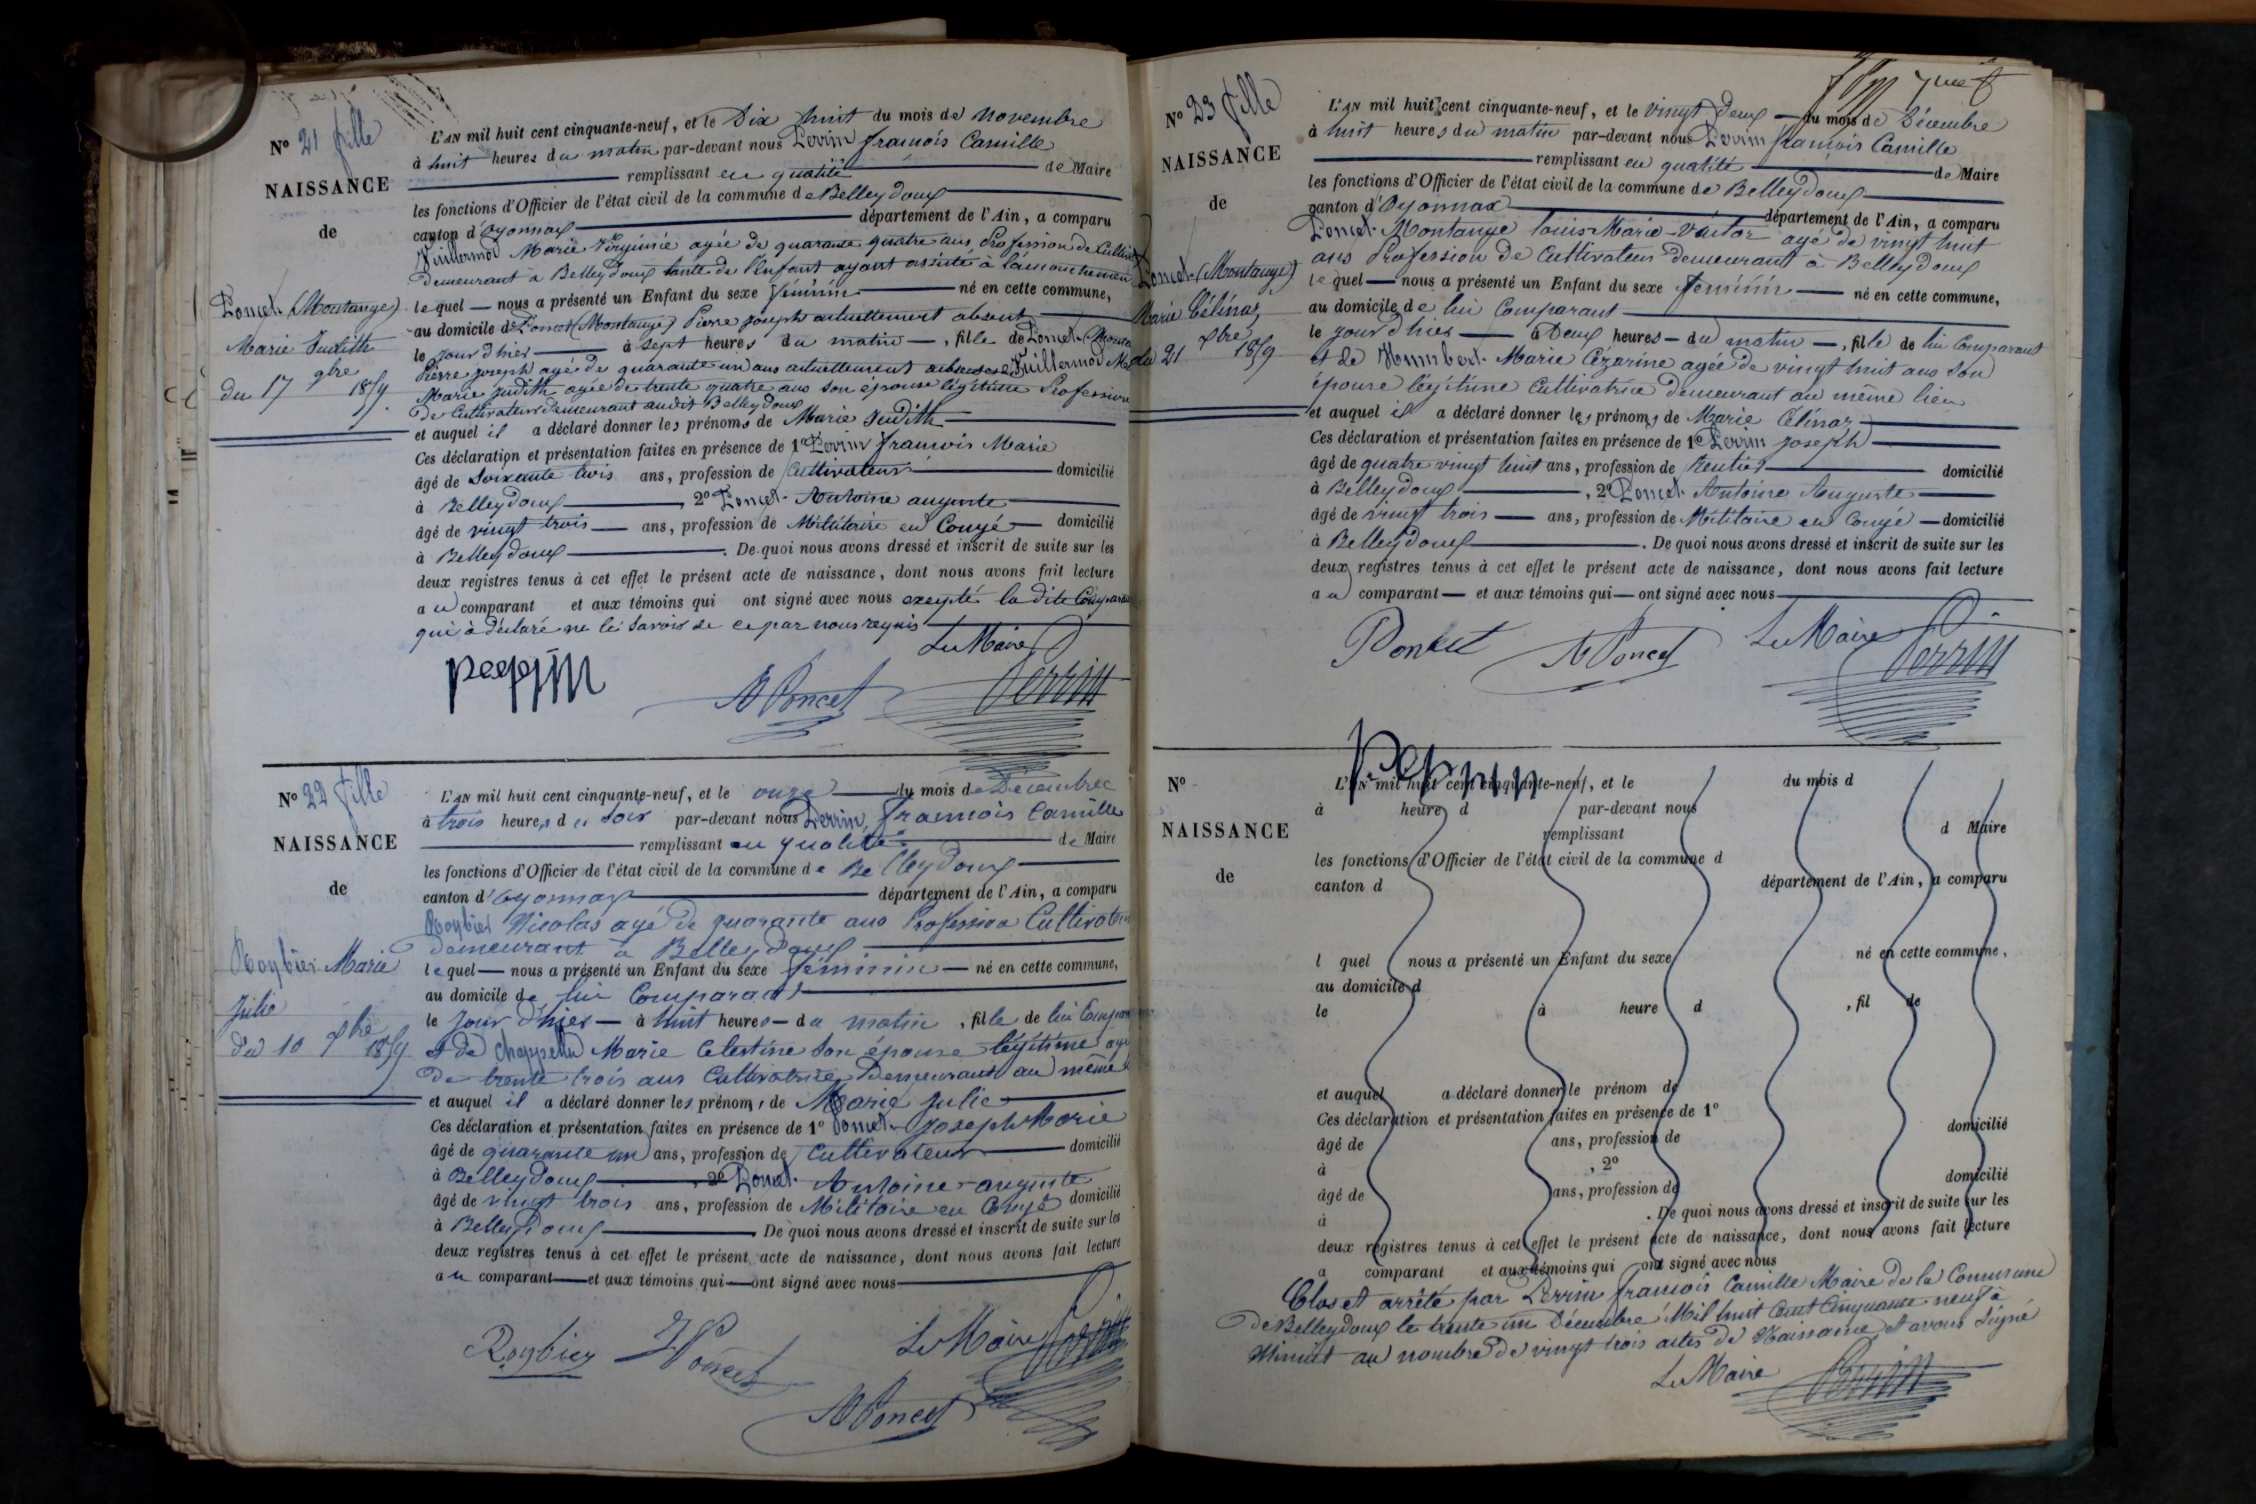 N° 21 fille
NAISSANCE
de
Poncet (Montange)
Marie Judith
du 17 9bre 1859
L'AN mil huit cent cinquante-neuf, et le Dix huit du mois de Novembre
à huit heures du matin par-devant nous Perrin françois Camille
remplissant en qualité de Maire
les fonctions d'Officier de l'état civil de la commune de Belleydoux
canton d'Oyonnax département de l'Ain, a comparu
Vuillermoz Marie Virginie agée de quarante quatre ans, Profession de Cultiv
demeurant à Belleydoux tante de l'Enfant ayant assisté à l'accouchement
lequel nous a présenté un Enfant du sexe féminin né en cette commune,
au domicile de Poncet (Montange) Pierre joseph actuellement absent
le jour d'hier à sept heures du matin, fille de Poncet (Monta
Pierre joseph agé de quarante un ans actuellement et de Vuillermoz
Marie judith agée de trente quatre ans son épouse légitime Profession
de Cultivateur demeurant audit Belleydoux
et auquel il a déclaré donner les prénoms de Marie Judith
Ces déclaration et présentation faites en présence de 1° Perrin françois Marie
âgé de Soixante trois ans, profession de Cultivateur domicilié
à Belleydoux, 2° Poncet Antoine auguste
âgé de vingt trois ans, profession de Militaire en Congé domicilié
à Belleydoux. De quoi nous avons dressé et inscrit de suite sur les
deux registres tenus à cet effet le présent acte de naissance, dont nous avons fait lecture
au comparant et aux témoins qui ont signé avec nous excepté la dite Comparan
qui à déclaré ne le savoir de ce par nous requis
Le Maire
perrin
A Poncet
Perrin
N° 22 fille
NAISSANCE
de
Roybier Marie
Julie
du 10 Xbre 1859
L'AN mil huit cent cinquante-neuf, et le onze du mois de Décembre
à trois heures du Soir par-devant nous Perrin françois Camille
remplissant en qualité de Maire
les fonctions d'Officier de l'état civil de la commune de Belleydoux
canton d'Oyonnax département de l'Ain, a comparu
Roybier Nicolas agé de quarante ans Profession Cultivateur
demeurant à Belleydoux
lequel nous a présenté un Enfant du sexe féminin né en cette commune,
au domicile de lui Comparant
le jour d'hier à huit heures du matin, fille de lui Compar
et de Chappellu Marie Celestine Son épouse légitime agé
de trente trois ans Cultivatrice Demeurant au même
et auquel il a déclaré donner les prénoms de Marie Julie
Ces déclaration et présentation faites en présence de 1° Poncet joseph Marie
âgé de quarante un ans, profession de Cultivateur domicilié
à Belleydoux, 2° Poncet Antoine auguste
âgé de vingt trois ans, profession de Militaire en Congé domicilié
à Belleydoux De quoi nous avons dressé et inscrit de suite sur les
deux registres tenus à cet effet le présent acte de naissance, dont nous avons fait lecture
au comparant et aux témoins qui ont signé avec nous
Roybier
Poncet
Le Maire Perrin
A Poncet
N° 23 fille
NAISSANCE
de
Poncet (Montange)
Marie Célina
du 21 Xbre 1859
L'AN mil huit cent cinquante-neuf, et le vingt Deux du mois de Décembre
à huit heures du matin par-devant nous Perrin françois Camille
remplissant en qualité de Maire
les fonctions d'Officier de l'état civil de la commune de Belleydoux
canton d'Oyonnax département de l'Ain, a comparu
Poncet Montange louis Marie Victor agé de vingt huit
ans Profession de Cultivateur demeurant à Belleydoux
lequel nous a présenté un Enfant du sexe féminin né en cette commune,
au domicile de lui Comparant
le jour d'hier à Deux heures du matin, fille de lui Comparant
et de Humbert Marie Cézarine agée de vingt huit ans son
épouse légitime Cultivatrice demeurant au même lieu
et auquel il a déclaré donner les prénoms de Marie Célina
Ces déclaration et présentation faites en présence de 1° Perrin joseph
âgé de quatre vingt huit ans, profession de Rentier domicilié
à Belleydoux, 2° Poncet Antoine Auguste
âgé de vingt trois ans, profession de Militaire en Congé domicilié
à Belleydoux. De quoi nous avons dressé et inscrit de suite sur les
deux registres tenus à cet effet le présent acte de naissance, dont nous avons fait lecture
au comparant et aux témoins qui ont signé avec nous
Poncet
A Poncet
Le Maire Perrin
perrin
N°
NAISSANCE
de
L'AN mil huit cent cinquante-neuf, et le du mois d
à heure d par-devant nous
remplissant d Maire
les fonctions d'Officier de l'état civil de la commune d
canton d département de l'Ain, a comparu
l quel nous a présenté un Enfant du sexe né en cette commune,
au domicile d
le à heure d , fil de
et auquel a déclaré donner le prénom de
Ces déclaration et présentation faites en présence de 1°
âgé de ans, profession de domicilié
à , 2°
âgé de ans, profession de domicilié
à . De quoi nous avons dressé et inscrit de suite sur les
deux registres tenus à cet effet le présent acte de naissance, dont nous avons fait lecture
a comparant et aux témoins qui ont signé avec nous
Clos et arrêté par Perrin françois Camille Maire de la Commune
de Belleydoux le trente un Décembre Mil huit Cent Cinquante neuf à
Minuit au nombre de vingt trois actes de Naissance et avons Signé
Le Maire Perrin